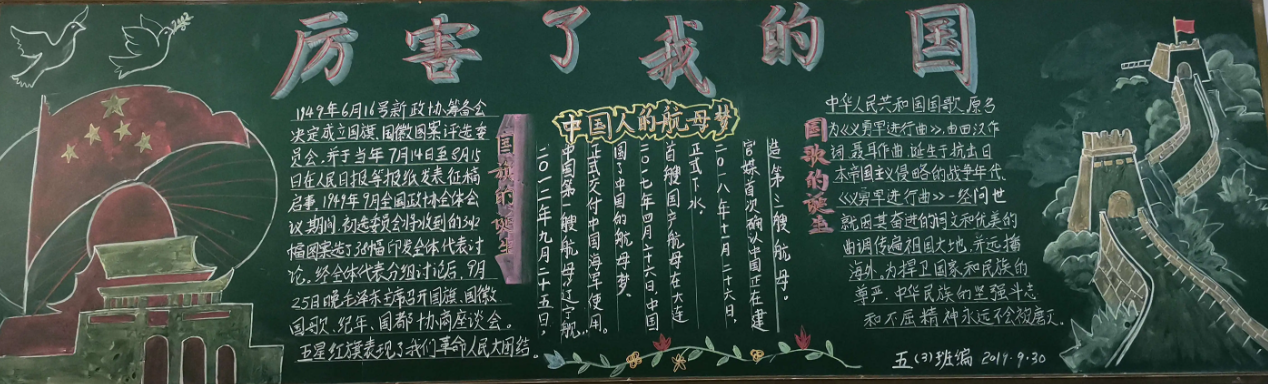 厉害了我的国
1949年6月16号新政协筹备会
决定成立国旗、国徽图案评选委
员会,并于当年7月14日至8月15
日在人民日报等报纸发表征稿
启事.1949年9月全国政协全体会
议期间,初选委员会将收到的
幅图案选了38幅印发全体代表讨
论。经全体代表分组讨论后,9月
25日晚毛泽东主席召开国旗、国徽
国歌、纪年、国都协商座谈会。
五星红旗表现了我们革命人民大团结。
国旗的诞生
中国人的航母梦
二〇一二年九月二十五日,
中国第一艘航母"辽宁舰…
正式交付中国海军使用。
圆了中国的航母梦。
二〇一七年四月二十六日,中国
首艘国产航母在大连
正式下水。
二〇一八年十一月二十六日,
官媒首次确认中国正在建
造第三艘航母。
国歌的诞生
中华人民共和国国歌原名
为《义勇军进行曲》,由田汉作
词,聂耳作曲,诞生于抗击日
本帝国主义侵略的战争年代
《义勇军进行曲》一经问世
就因其奋进的词义和优美的
曲调传遍祖国大地,并远播
海外,为捍卫国家和民族的
尊严,中华民族的坚强斗志
和不屈精神永远不会被磨灭。
五(3)班编 2019.9.30